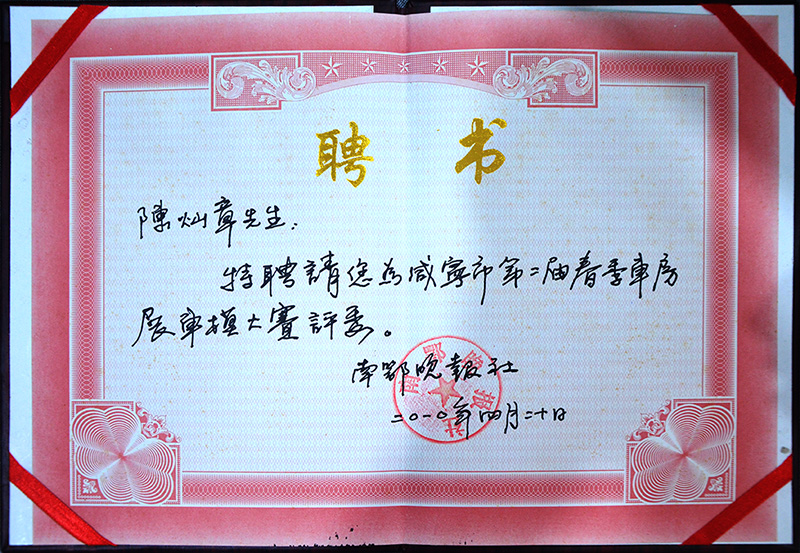 聘书
陳灿章先生：
特聘請您为咸寧市第二届春季車房
展車模大賽評委。
南鄂晚報社
二〇一〇年四月二十日
南鄂晚报社